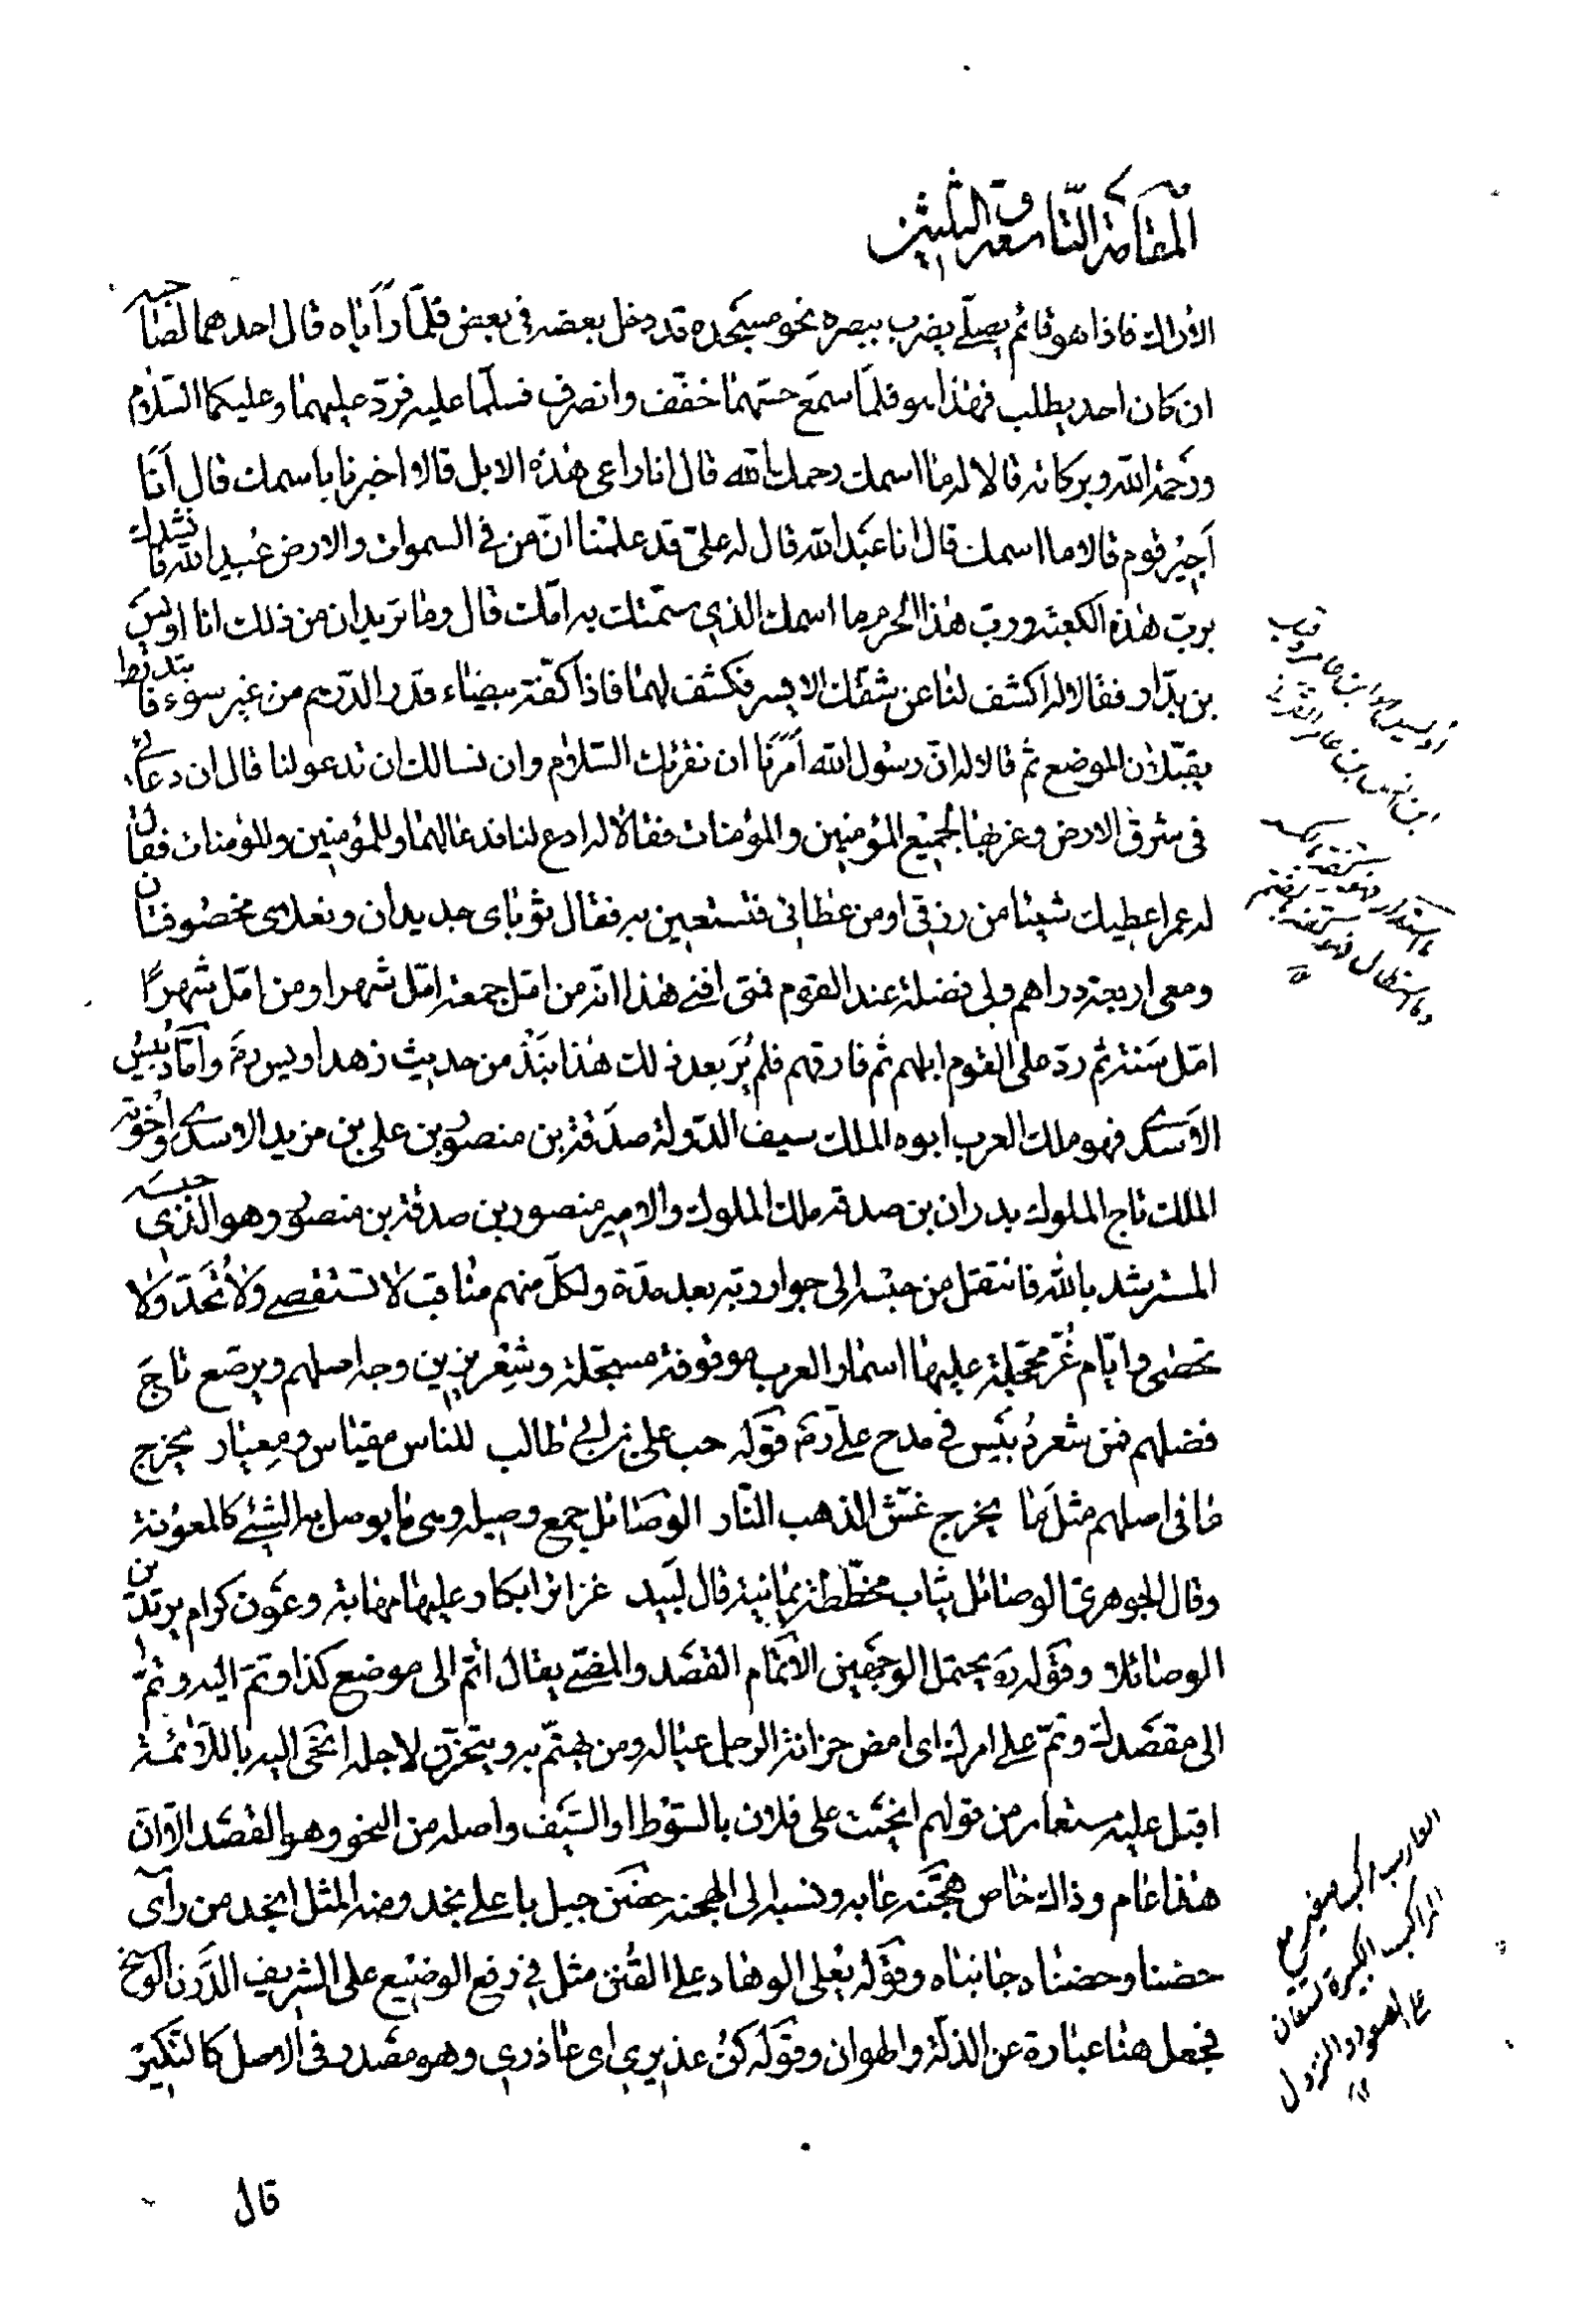 المقامة التاسعة والثلثين
الاراك فاذا هو قائم يصلّى يضرب ببصره نحو مسجده قد دخل بعضه فى بعض فلمّا رأياه قال احدهما لصاحبه
ان كان احد يطلب فهذا هو فلمّا سمع حسّهما خفّف وانصرف فسلّما عليه فردّ عليهما وعليكما السّلام
ورحمة الله وبركاته قالا له ما اسمك رحمك الله قال انا راعى هذه الابل قالا اخبرنا باسمك قال انا
اجير قوم قالا ما اسمك قال انا عبد الله قال له علىّ قد علمنا انّ من فى السموات والارض عبيد الله فانشدك
بربّ هذه الكعبة وربّ هذا الحرم ما اسمك الذى سمّتك به امّك قال وما تريدان من ذلك انا اويس
بن بدّاو فقالا له اكشف لنا عن شقّك الايسر فكشف لهما فاذا كفّة بيضاء قدر الدّرهم من غير سوء فابتدرا
يقبّلان الموضع ثم قالا له انّ رسول الله امرنا ان نقرئك السّلام وان نسالك ان تدعو لنا قال ان دعائى
فى شرق الارض وغربها لجميع المؤمنين والمؤمنات فقالا له ادع لنا فدعا لهما وللمؤمنين وللمؤمنات فقال
له عمر اعطيك شيئا من رزقى او من عطائى فتستعين به فقال ثوباى جديدان ونعلاى مخصوفتان
ومعى اربعة دراهم ولى فضلة عند القوم فمتى افنى هذا انّه من امّل جمعة امّل شهرا ومن امّل شهرًا
امّل سنة ثم ردّ على القوم ابلهم ثم فارقهم فلم يُرَ بعد ذلك هذا نبذ من حديث زهد اويس رض وامّا دُبيس
الاسدى فهو ملك العرب ابوه الملك سيف الدّولة صدقة بن منصور بن على بن مزيد الاسدى واخوته
الملك تاج الملوك بدران بن صدقة ملك الملوك والامير منصور بن صدقة بن منصور وهو الذى حبسه
المسترشد بالله فانتقل من حبسه الى جوار ربّه بعد مدّة ولكلّ منهم مناقب لا تستقصى ولا تُحدّ ولا
تحصى وايّام غُرّ محجّلة عليها اسماء العرب موقوفة مسجّلة وشعر يزين وجه اصلهم ويرصّع تاج
فضلهم فمن شعر دُبَيس فى مدح علىّ رض قوله حب على بن ابى طالب للناس مقياس ومعيار يخرج
ما فى اصلهم مثل ما يخرج غشّ الذهب النّار الوصائل جمع وصيلة وهى ما يوصل به الشىء كالمعونة
وقال الجوهرىّ الوصائل ثياب مخطّطة يمانية قال لبيد غرائر ابكار عليها مهابة وعون كرام يرتدين
الوصائلا وقوله يحتمل الوجهين الاتمام القصد والمضىّ يقال اتم الى موضع كذا وتمّ اليه وتمّ
الى مقصدك وتمّ على امرك اى امض حزانة الرجل عياله ومن يهتمّ به ويتحزّن لاجله انحى اليه باللائمة
اقبل عليه مستعار من قولهم انحيت على فلان بالسّوط او السّيف واصله من النحو وهو القصد الّا انّ
هذا عام وذاك خاص هجّنه عابه ونسبه الى الهجنة حضن جبل باعلى نجد ومنه المثل انجد من رأى
حضنا وحضناه جانباه وقوله يُعلى الوهاد على القنن مثل فى رفع الوضيع على الشريف الدّرن الوسخ
فجعل هنا عبارة عن الذلّة والهوان وقوله كن عذيرى اى عاذرى وهو مصدر فى الاصل كالنكير
قال
القارب اكبر صغير مع
المراكب الكبيرة تستعان
على الصعود والنزول